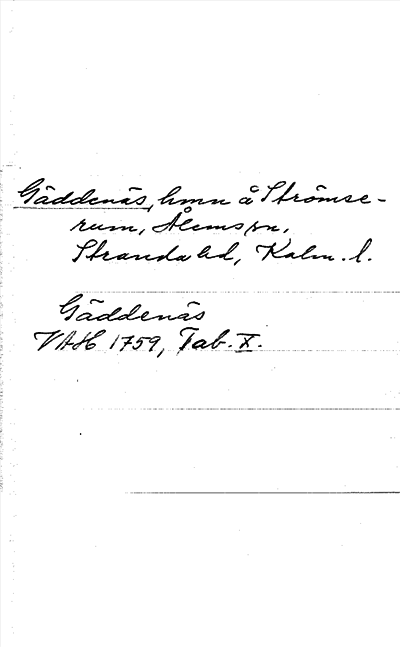 Gäddenäs, hmn å Strömse-
rum, Ålems sn,
Stranda hd, Kalm. l.
Gäddenäs
VAH 1759, Tab. X.